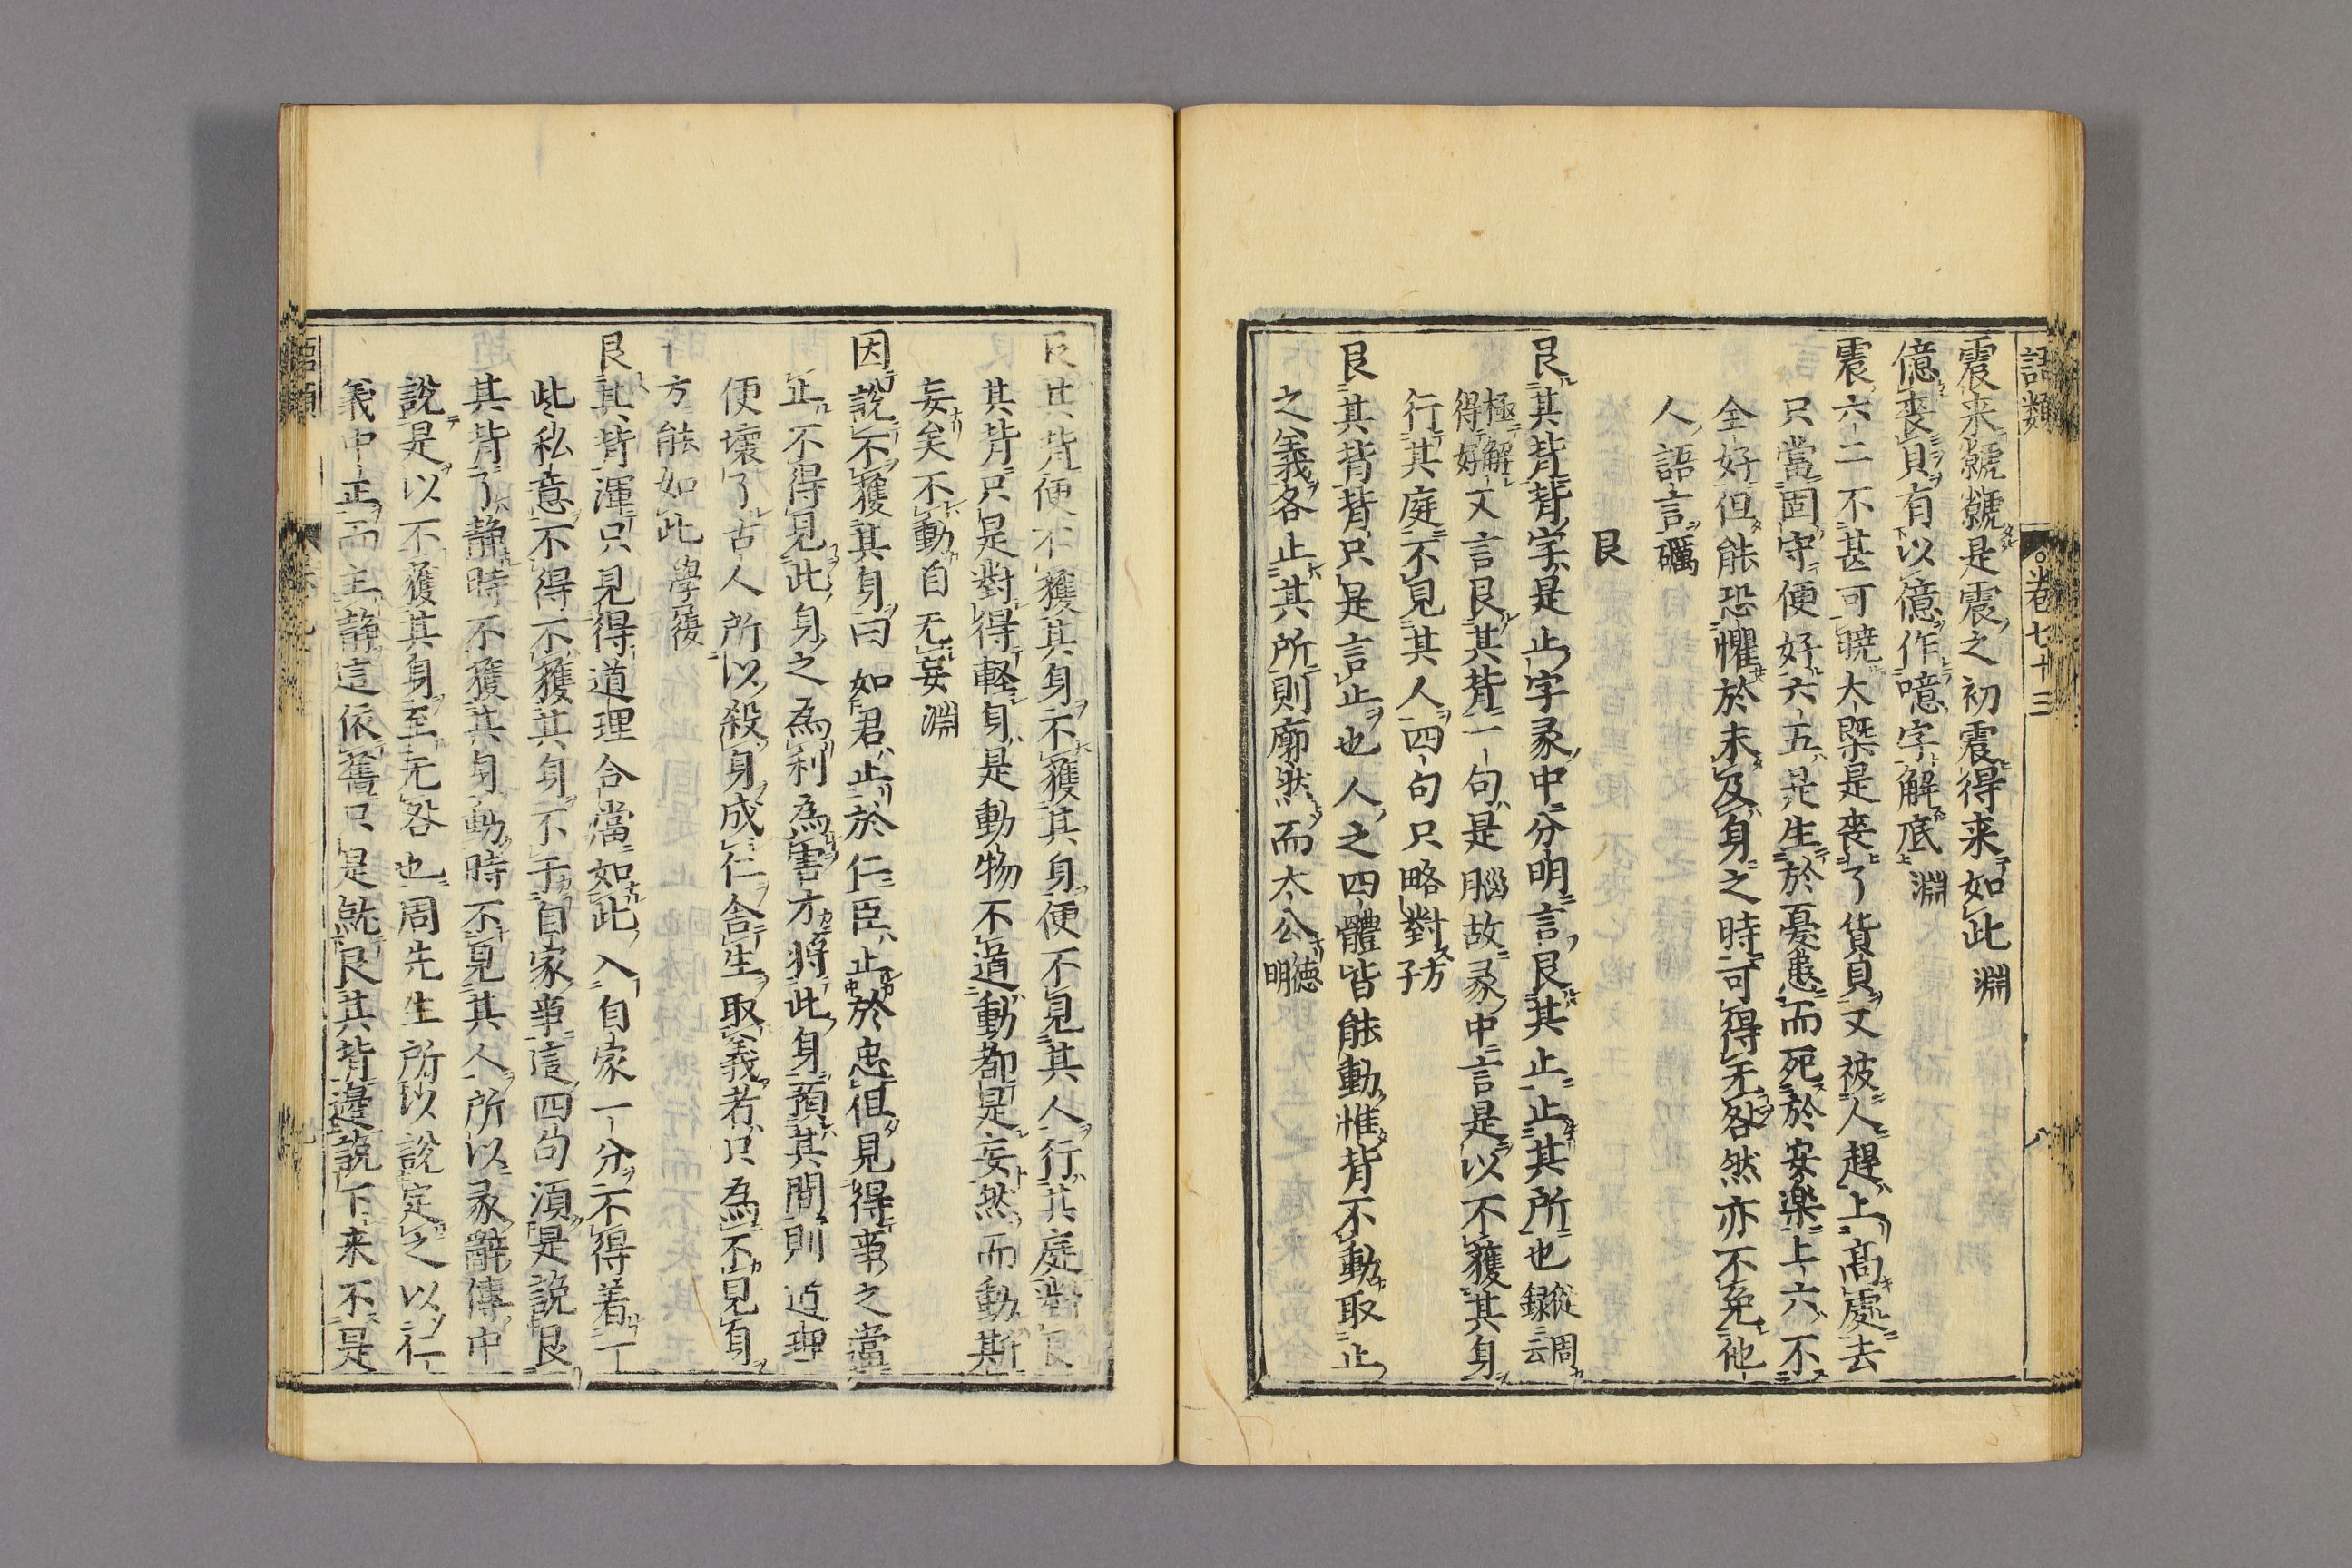 語類 卷七十三 八
震来虩虩是震之初震得来如此 淵
億喪貝有以億作噫字解底 淵
震六二不甚可曉大槩是喪了貨貝又被人趕上高處去
只當固守便好六五是生於憂患而死於安樂上六不
全好但能恐懼於未及身之時可得无咎然亦不免他
人語言礪
艮
艮其背背字是止字彖中分明言艮其止止其所也 從周録云
極解得好又言艮其背一句是腦故彖中言是以不獲其身
行其庭不見其人四句只略對方子
艮其背背只是言止也人之四體皆能動惟背不動取止
之義各止其所則廓然而大公德明
艮其背便不獲其身不獲其身便不見其人行其庭對艮
其背只是對得輕身是動物不道動都是妄然而動斯
妄矣不動自无妄 淵
因說不獲其身曰如君止於仁臣止於忠但見得事之當
止不得見此身之為利為害方將此身預其間則道理
便壞了古人所以殺身成仁舍生取義者只為不見身
方能如此 學履
艮其背渾只見得道理合當如此入自家一分不得着一
些私意不得不獲其身不干自家事這四句須是說艮
其背了静時不獲其身動時不見其人所以彖辭傳中
說是以不獲其身至无咎也周先生所以說定之以仁
義中正而主静這依舊只是就艮其背邊說下来不是
語類